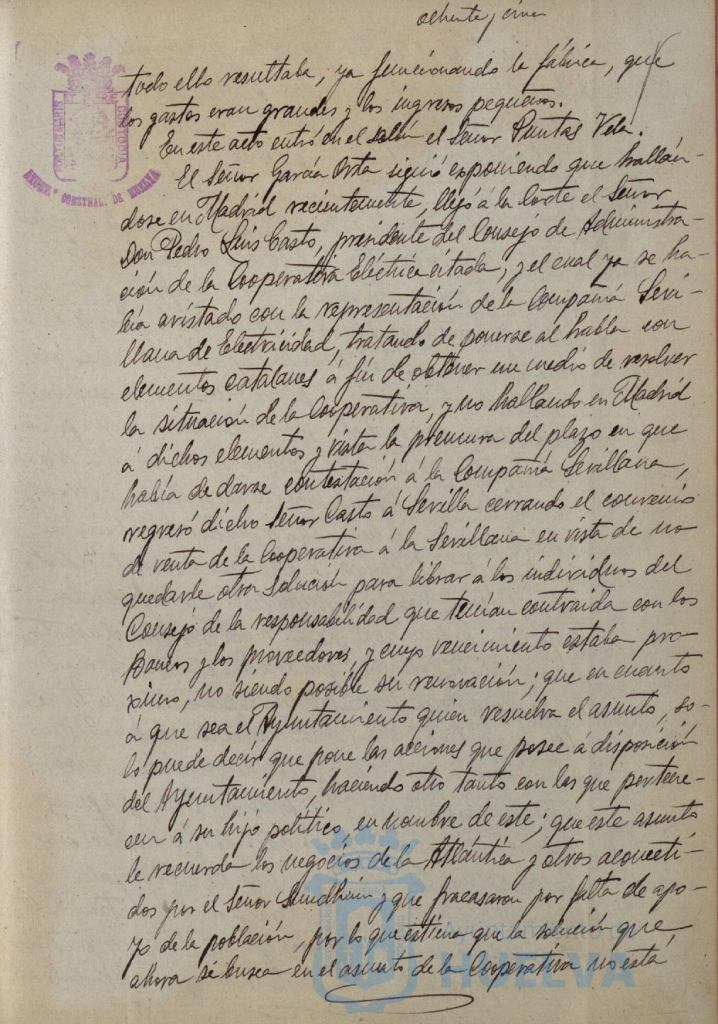 ochenta y cinco
todo ello resultaba, ya funcionando la fábrica, que
los gastos eran grandes y los ingresos pequeños.
En este acto entró en el salón el Señor Puntas Vela.
El Señor García Orta siguió exponiendo que hallán-
dose en Madrid recientemente, llegó á la Corte el Señor
Don Pedro Luis Casto, presidente del Consejo de Administra-
ción de la Cooperativa Eléctrica citada, y el cual ya se ha-
bía avistado con la representación de la Compañía Sevi-
llana de Electricidad, tratando de ponerse al habla con
elementos catalanes á fin de obtener un medio de resolver
la situación de la Cooperativa, y no hallando en Madrid
á dichos elementos y vista la premura del plazo en que
había de darse contestación á la Compañía Sevillana,
regresó dicho Señor Casto á Sevilla cerrando el convenio
de venta de la Cooperativa á la Sevillana en vista de no
quedarle otra solución para librar á los individuos del
Consejo de la responsabilidad que tenían contraida con los
Bancos y los proveedores, y cuyo vencimiento estaba pro-
ximo, no siendo posible su renovación; que en cuanto
á que sea el Ayuntamiento quien resuelva el asunto, so-
lo puede decir que pone las acciones que posee á disposición
del Ayuntamiento, haciendo otro tanto con las que pertene-
cen á su hijo político, en nombre de este; que este asunto
le recuerda los negocios de la Atlántica y otros acometi-
dos por el Señor Sundheim y que fracasaron por falta de apo-
yo de la población, por lo que estima que la solución que
ahora se busca en el asunto de la Cooperativa no está
HUELVA